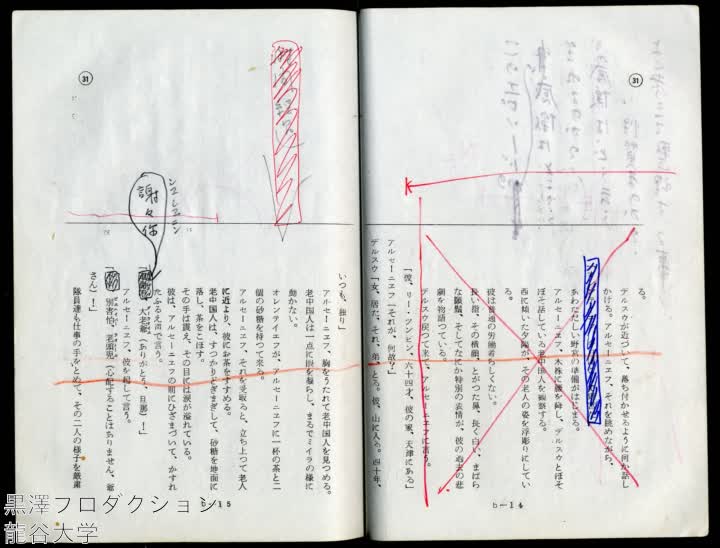 ㉛
る。
デルスウが近づいて、落ち付かせるように何か話し
かける。アルセーニエフ、それを眺めながら、
あわただしい野営の準備がはじまる。
アルセーニエフ、木株に腰を降し、デルスウとぼそ
ぼそ話している老中国人を観察する。
西に傾いた夕陽が、その老人の姿を浮彫りにしてい
る。
彼は普通の労働者らしくない。
長い指、その横顔、とがつた鼻、長く白い、まばら
な顎鬚、そしてなにか特別の表情が、彼の過去の悲
劇を物語つている。
デルスウ戻つて来て、アルセーニエフに言う。
「彼、リー・ツンビン、六十四才、彼の家、天津にある」
アルセーニエフ「それが、何故?」
デルスウ「女、居た。それ、弟、とる。彼、山に入る。四十年、
b―14
㉛
いつも、独り」
アルセーニエフ、胸をうたれて老中国人を見つめる。
老中国人は一点に眼を凝らし、まるでミイラの様に
動かない。
オレンテイエフが、アルセーニエフに一杯の茶と二
個の砂糖を持つて来る。
アルセーニエフ、それを受取ると、立ち上つて老人
に近より、彼にお茶をすすめる。
老中国人は、すつかりどぎまぎして、砂糖を地面に
落し、茶をこぼす。
その手は震え、その目には涙が溢れている。
彼は、アルセーニエフの前にひざまづいて、かすれ
たふるえ声で言う。
謝々你
シエシエニン
大老爺(ありがとう、旦那)!」
アルセーニエフ、彼を起して言う。
別害怕、老頭児(心配することはありません、爺
さん)!」
隊員達も仕事の手をとめて、その二人の様子を厳粛
b―15
黒澤プロダクション
龍谷大学